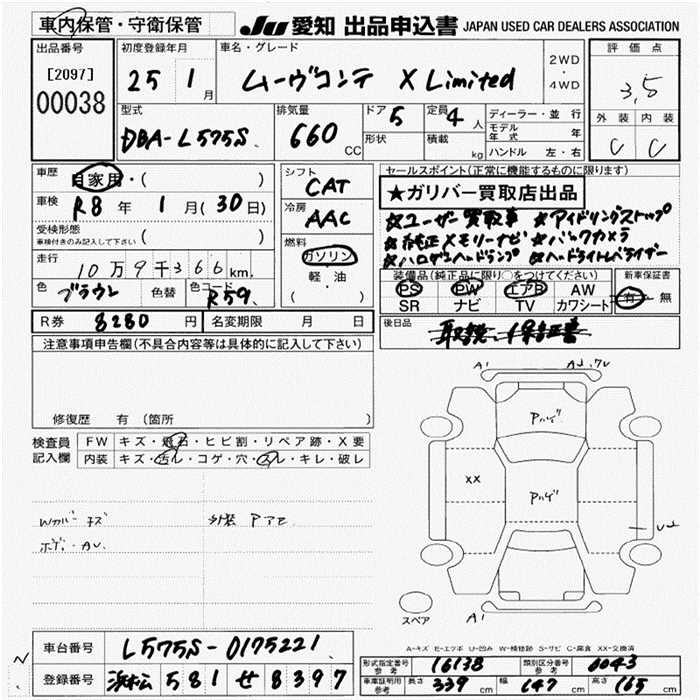 車内保管・守衛保管 JU 愛知 出品申込書 JAPAN USED CAR DEALERS ASSOCIATION
出品番号 初度登録年月 車名・グレード 評価点
[2097] 25 1月 ムーヴコンテ X Limited 2WD・4WD 3,5
00038 外装 内装
C C
型式 排気量 ドア 5 定員 4人 ディーラー・並行
DBA-L575S 660CC 形状 積載 kg モデル年式 年
ハンドル 左・右
車歴 自家用・( ) シフト CAT セールスポイント(正常に機能するものに限ります)
車検 R8年 1月(30日) 冷房 AAC ★ガリバー買取店出品
受検形態 車検付きのみ記入して下さい ( ) ★ユーザー買取車 ★アイドリングストップ
走行 燃料 ★純正メモリーナビ ★バックカメラ
10万9千366km ガソリン ★ハロゲンヘッドランプ ★ヘッドライトレベライザー
軽・油 装備品(純正品に限り○をつけてください) 新車保証書
色 ブラウン 色替 色コード R59 PS PW エアB AW 有・無
SR ナビ TV カワシート
R券 8280円 名変期限 月 日 後日品 取説・保証書
注意事項申告欄(不具合内容等は具体的に記入して下さい)
A1 A2,7U
Pハゲ
修復歴 有 (箇所
検査員 FW キズ・飛石・ヒビ割・リペア跡・X要
記入欄 内装 キズ・汚レ・コゲ・穴・スレ・キレ・破レ
XX Pハゲ
Wカバー キズ 外装 Pアセ
ボディ・AU
U2
スペア A1
A-キズ E-エクボ U-凹み W-補修跡 S-サビ C-腐食 XX-交換済
車台番号 L575S-0175221
形式指定番号 参考 16138 類別区分番号 参考 6043
登録番号 浜松 581 せ 8397
車庫証明用 参考 長さ 339cm 幅 147cm 高さ 165cm